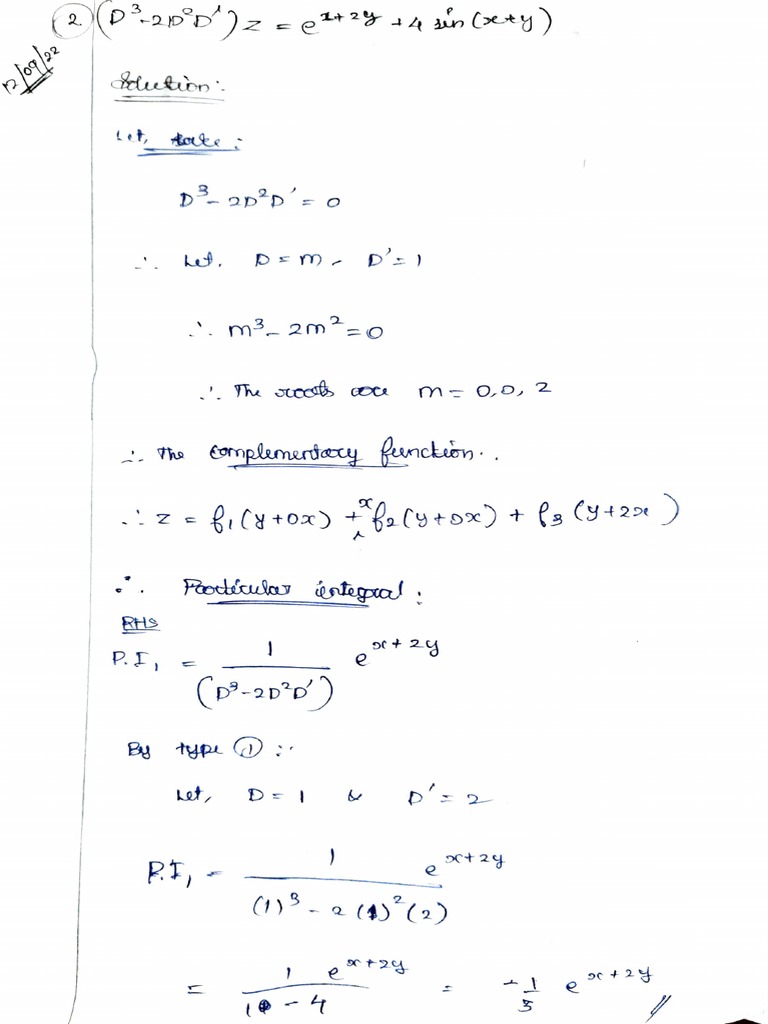 ② (D³-2D²D')z = e^(x+2y) + 4 sin(x+y)
12/09/22
Solution:
Let, take:
D³ - 2D²D' = 0
∴ Let. D = m, D' = 1
∴ m³ - 2m² = 0
∴ The roots are m = 0, 0, 2
∴ The complementary function..
∴ z = f₁(y+0x) + x f₂(y+0x) + f₃(y+2x)
∴ Particular integral:
RHS
P.I₁ = 1/(D³-2D²D') e^(x+2y)
By type ① :
Let, D = 1 & D' = 2
P.I₁ = 1/((1)³ - 2(1)²(2)) e^(x+2y)
= 1/(1 - 4) e^(x+2y) = -1/3 e^(x+2y) //